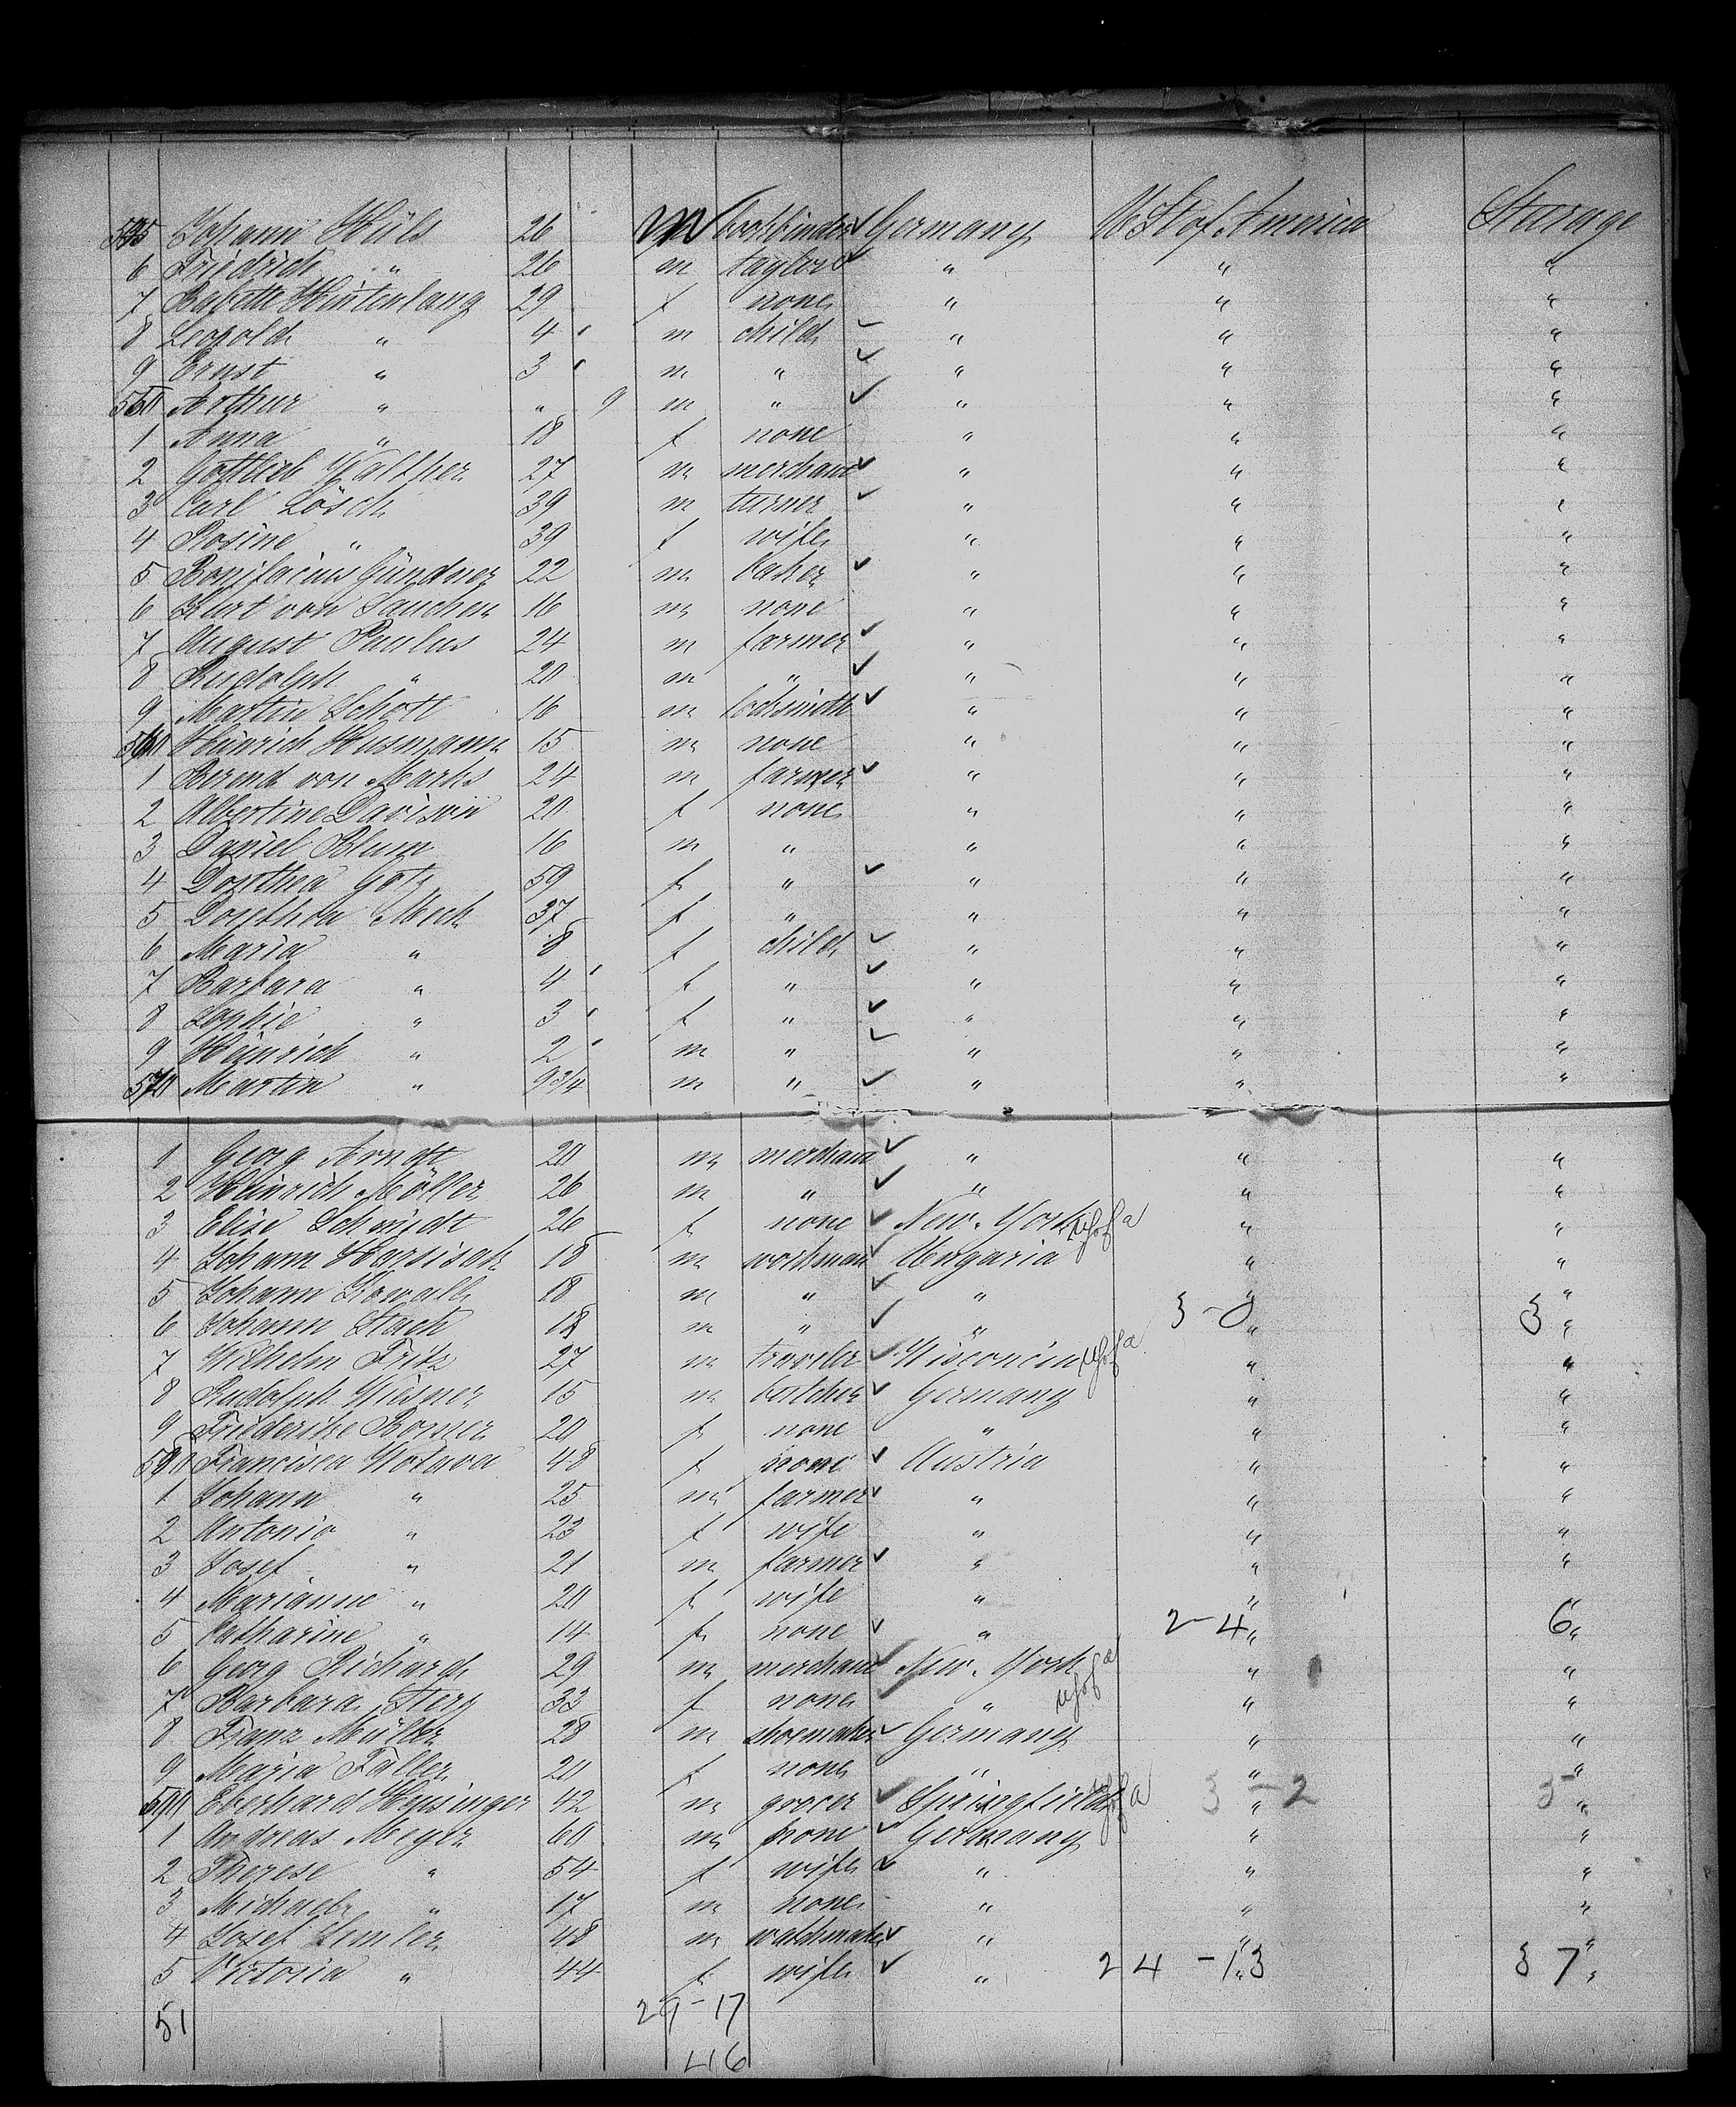 Johann Hüls 26 m bookbinder Germany U St of America Steerage
6 Friedrich " 26 m taylor " " "
7 Babette Hintenlang 29 f none " " "
8 Leopold " 4 m child " " "
9 Ernst " 3 m " " " "
Arthur " " 9 m " " " "
1 Anna " 18 f none " " "
2 Gottlieb Walther 27 m merchant " " "
3 Carl Lösch 39 m turner " " "
4 Rosine " 39 f wife " " "
5 Bonifacius Gündner 22 m baker " " "
6 Kurt von 16 m none " " "
7 August Paulus 24 m farmer " " "
8 Rudolph " 20 m " " " "
9 Martin Schott 16 m locksmith " " "
Heinrich Husmann 15 m none " " "
1 Berend von Marks 24 m farmer " " "
2 Albertine 20 f none " " "
3 Daniel Blum 16 m " " " "
4 Dorothea Götz 59 f " " " "
5 Dorothea Meck 37 f " " " "
6 Maria " 8 f child " " "
7 Barbara " 4 f " " " "
8 Sophie " 3 f " " " "
9 Heinrich " 2 m " " " "
570 Martin " 9 3/4 m " " " "
1 Georg Arndt 20 m merchant " " "
2 Heinrich Möller 26 m " " " "
3 Elise Schmidt 26 f none New-York usofa " "
4 Johann 18 m workman Ungaria " "
5 Johann Kowall 18 m " " " "
6 Johann Stach 18 m " " 3-0 " 3 "
7 Wilhelm Fritz 27 m traveler Wisconcin usofa " "
8 Rudolph 15 m butcher Germany " "
9 Friederike 20 f none " " "
Francisca Wotava 48 f none Austria " "
1 Johann " 25 m farmer " " "
2 Antonia " 23 f wife " " "
3 Josef " 21 m farmer " " "
4 Marianne " 20 f wife " " "
5 Catharine " 14 f none " 2-4 " 6 "
6 Georg Richard 29 m merchant New-York usofa " "
7 Barbara 33 f none " usofa " "
8 Franz Müller 28 m shoemaker Germany " "
9 Maria Faller 20 f none " " "
Eberhard Heusinger 42 m grocer Springfield usofa 3-2 " 5 "
1 Andreas Meyer 60 m none Germany " "
2 Therese " 54 f wife " " "
3 Michael " 17 m none " " "
4 Josef Semler 48 m watchmaker " " "
5 Victoria " 44 f wife " 24-13 " 37 "
51 29-17
46